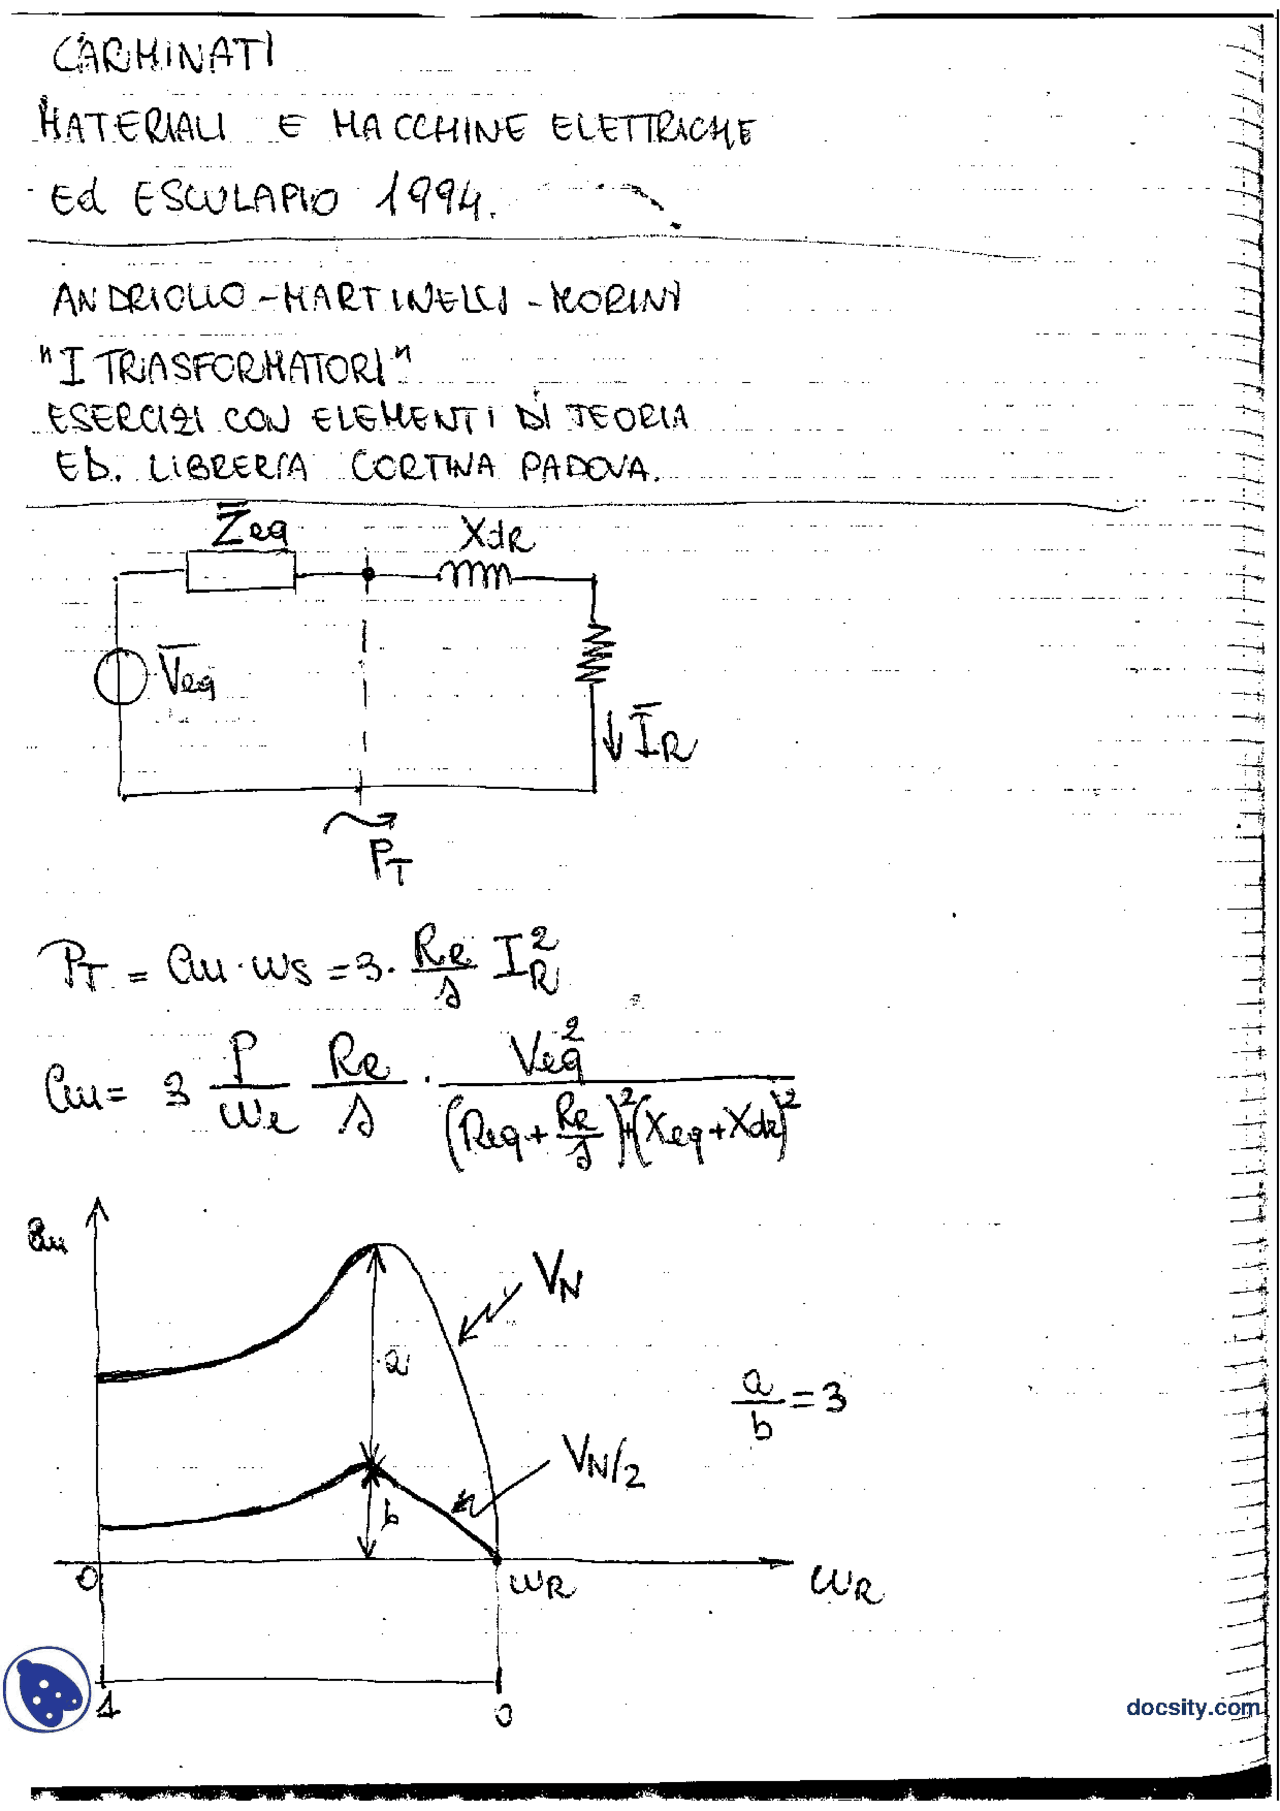 CARMINATI
MATERIALI E MACCHINE ELETTRICHE
Ed ESCULAPIO 1994.
ANDRIOLLO - MARTINELLI - MORINI
"I TRASFORMATORI"
ESERCIZI CON ELEMENTI DI TEORIA
ED. LIBRERIA CORTINA PADOVA.
Z̅eq XdR
V̅eq
I̅R
PT
PT = Cm · ωs = 3 · RR/s IR²
Cm = 3 P/ωe RR/s · Veq²/((Req + RR/s)² + (Xeq + XdR)²)
Cm
VN
a
a/b = 3
VN/2
b
0 ωR ωR
1 0
docsity.com